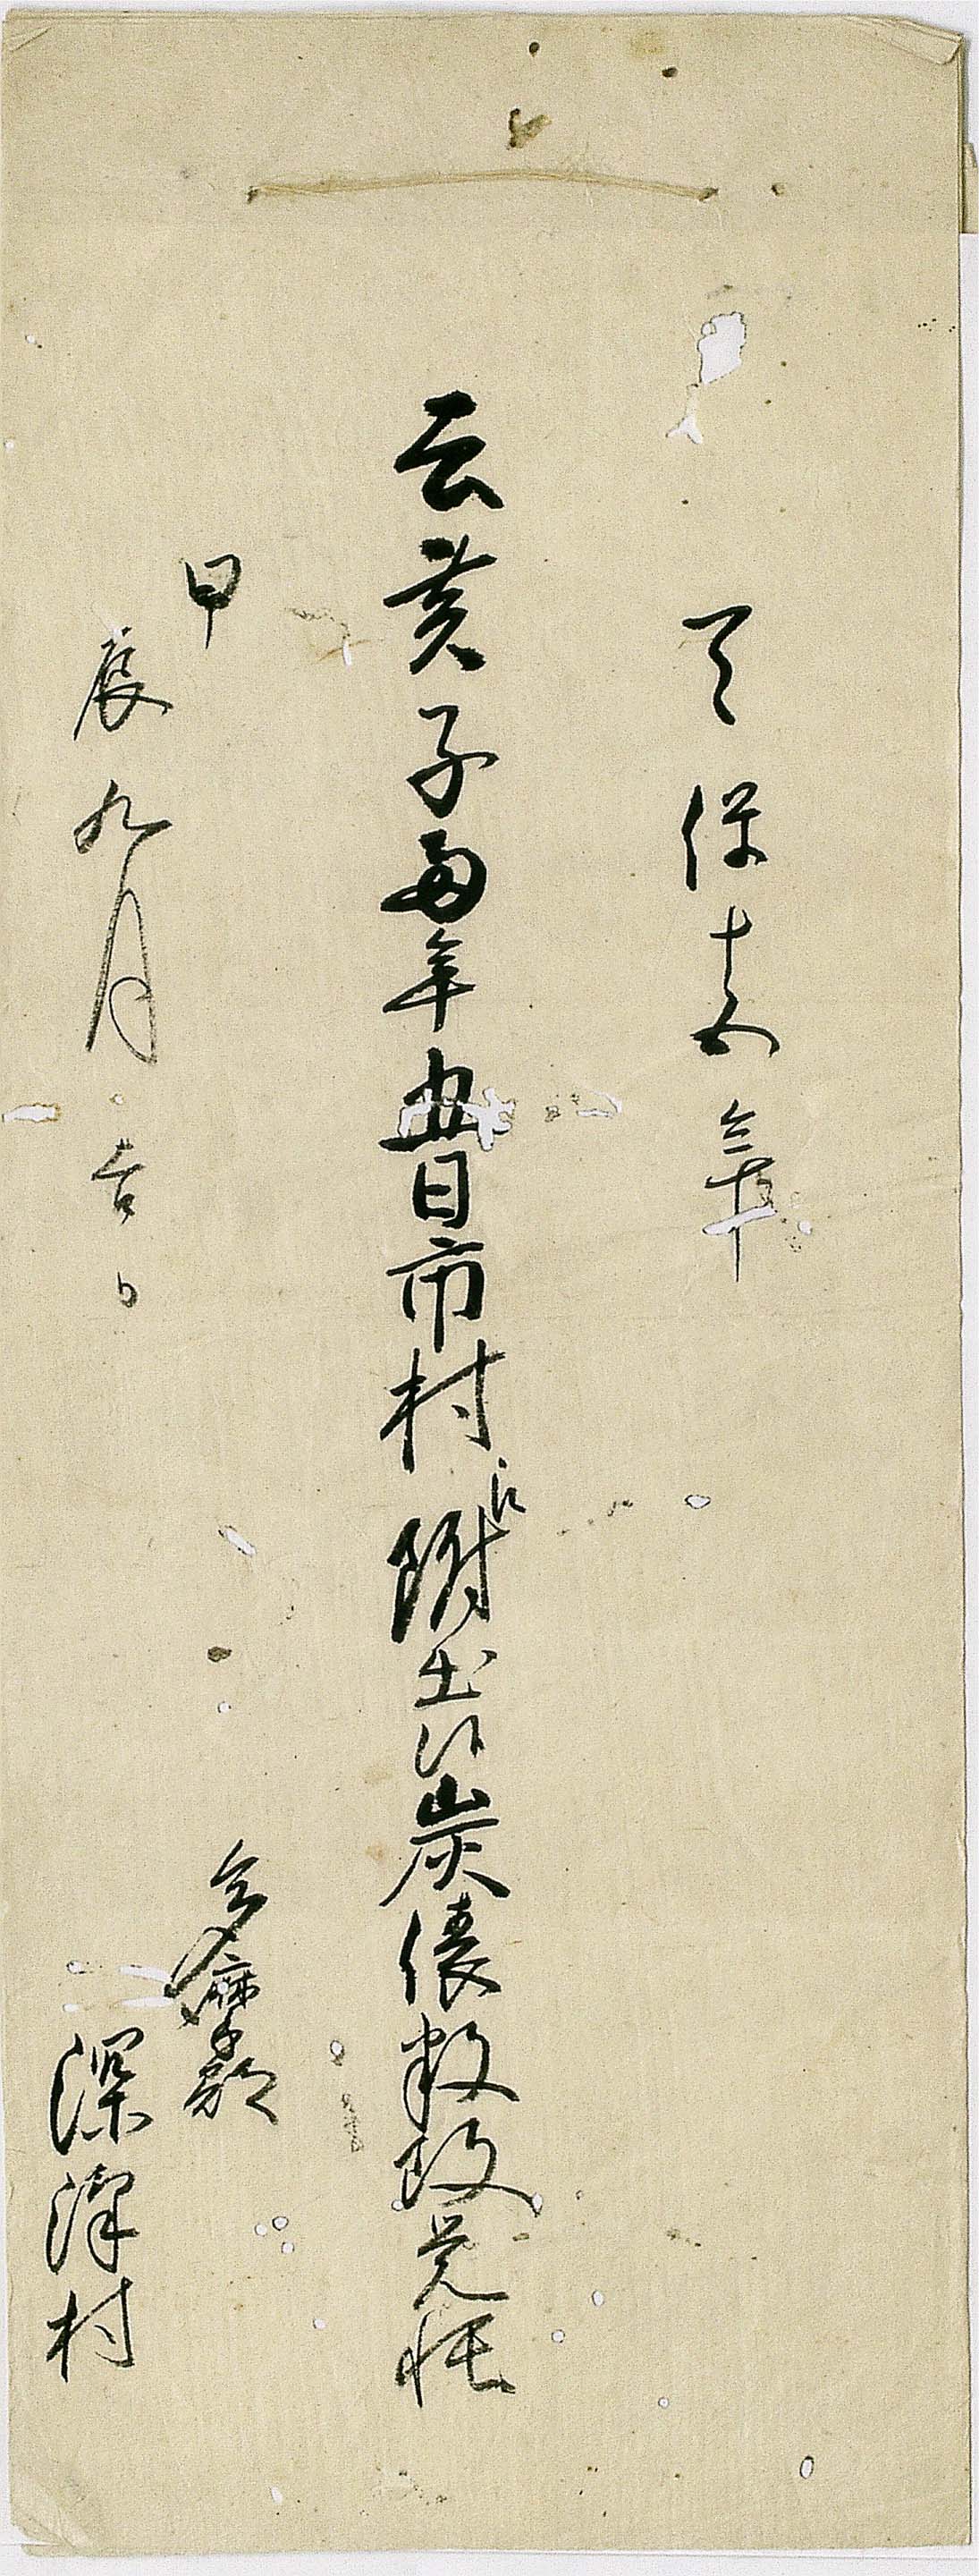 天保十五年
去亥子両年五日市村江附出候炭俵数改覚帳
甲
辰九月吉日
多摩郡
深沢村